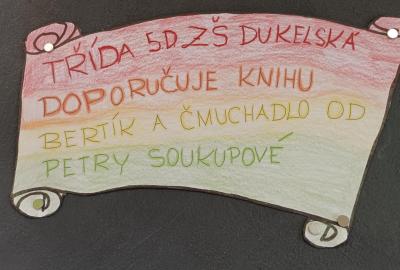 TŘÍDA 5D ZŠ DUKELSKÁ
DOPORUČUJE KNIHU
BERTÍK A ČMUCHADLO OD
PETRY SOUKUPOVÉ
D
D